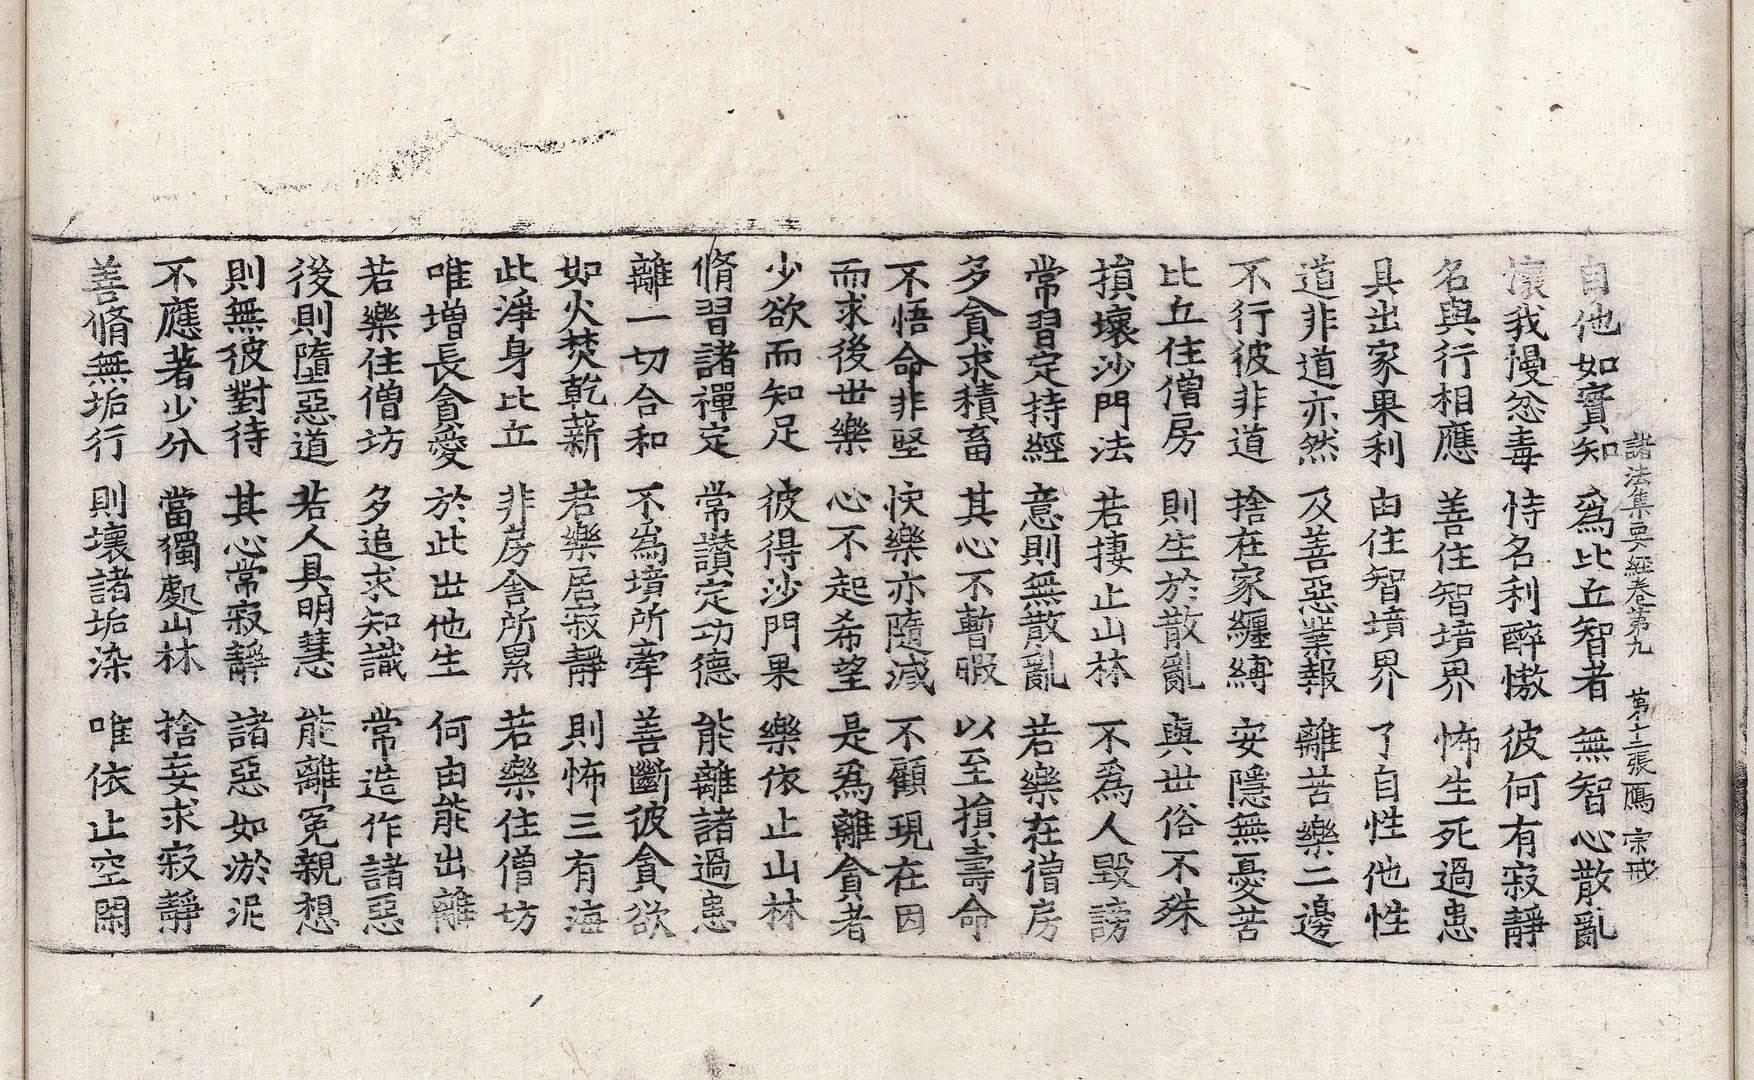 諸法集要經卷第九　第十二張　鴈　宗戒
自他如實知　爲比丘智者　無智心散亂
壞我慢忿毒　恃名利醉慠　彼何有寂靜
名與行相應　善住智境界　怖生死過患
具出家果利　由住智境界　了自性他性
道非道亦然　及善惡業報　離苦樂二邊
不行彼非道　捨在家纏縛　安隱無憂苦
比丘住僧房　則生於散亂　與世俗不殊
損壞沙門法　若捿止山林　不爲人毀謗
常習定持經　意則無散亂　若樂在僧房
多貪求積畜　其心不暫暇　以至損壽命
不悟命非堅　快樂亦隨減　不顧現在因
而求後世樂　心不起希望　是爲離貪者
少欲而知足　彼得沙門果　樂依止山林
脩習諸禪定　常讚定功德　能離諸過患
離一切合和　不爲境所牽　善斷彼貪欲
如火焚乾薪　若樂居寂靜　則怖三有海
此淨身比丘　非房舍所累　若樂住僧坊
唯增長貪愛　於此世他生　何由能出離
若樂住僧坊　多追求知識　常造作諸惡
後則墮惡道　若人具明慧　能離冤親想
則無彼對待　其心常寂靜　諸惡如淤泥
不應著少分　當獨處山林　捨妄求寂靜
善脩無垢行　則壞諸垢染　唯依止空閑